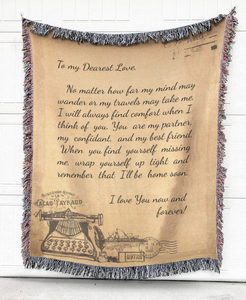 To my Dearest Love,
No matter how far my mind may
wander or my travels may take me.
I will always find comfort when I
think of you. You are my partner,
my confidant, and my best friend.
When you find yourself missing
me, wrap yourself up tight and
remember that I'll be home soon.
I love You now and
forever!